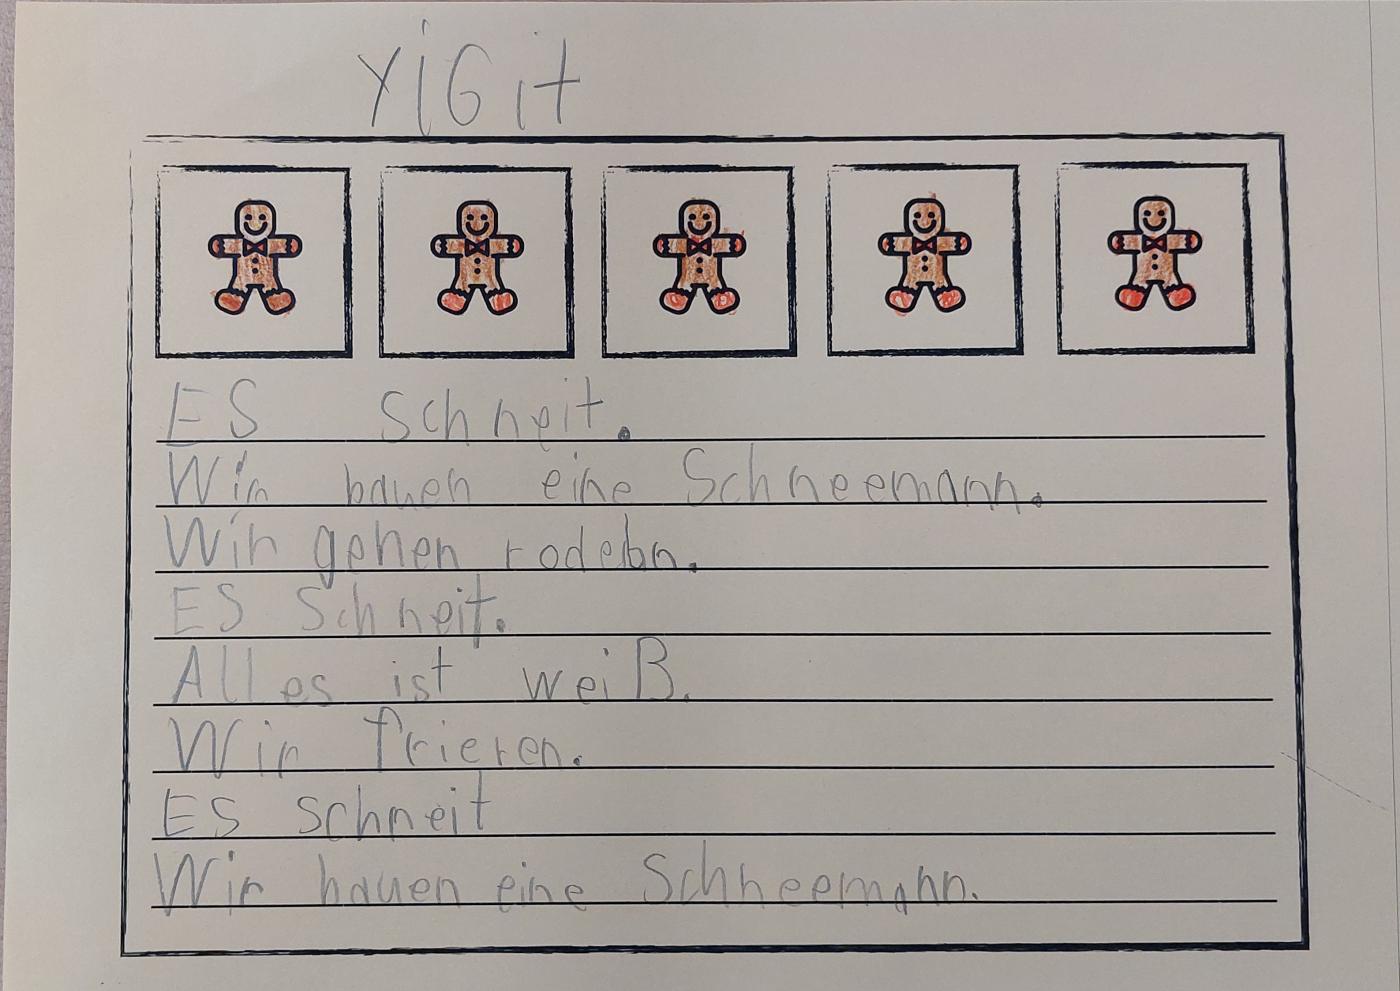 YiGit
ES schneit.
Wir bauen eine Schneemann.
Wir gehen rodeln.
ES Schneit.
Alles ist weiß.
Wir frieren.
ES schneit
Wir bauen eine Schneemann.